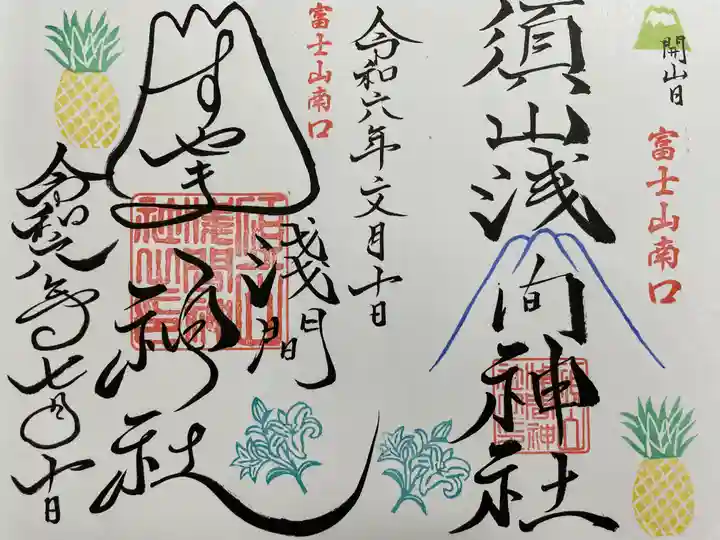 開山日
富士山南口
須山浅间神社
令和六年文月十日
富士山南口
すやま
浅間
神社
令和六年七月十日